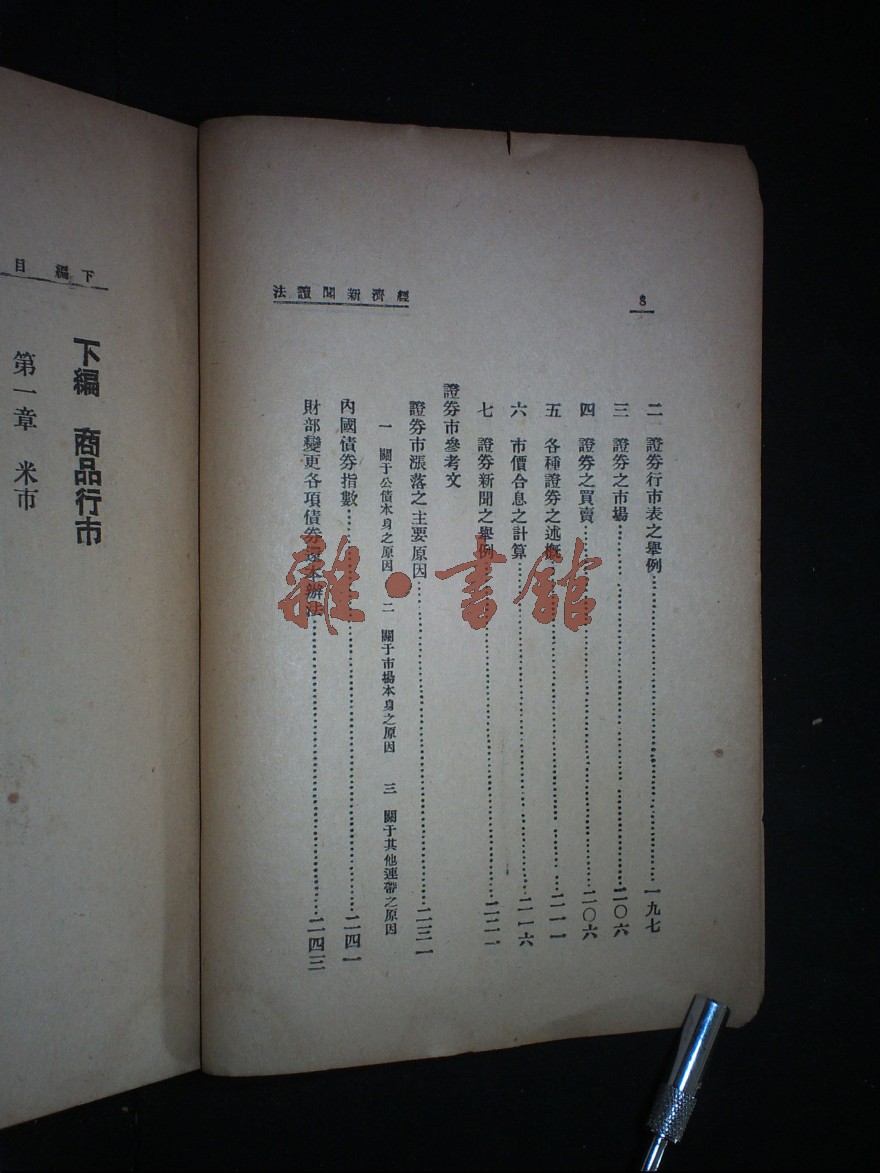 8
經濟新聞讀法
二　證券行市表之舉例……一九七
三　證券之市場……二〇六
四　證券之買賣……二〇六
五　各種證券之述概……二一一
六　市價合息之計算……二一六
七　證券新聞之舉例……二二一
證券市參考文
證券市漲落之主要原因……二三一
一　關于公債本身之原因　二　關于市場本身之原因　三　關于其他連帶之原因
內國債券指數……二四一
財部變更各項債券還本辦法……二四三
雜·書館
下編　目
下編　商品行市
第一章　米市